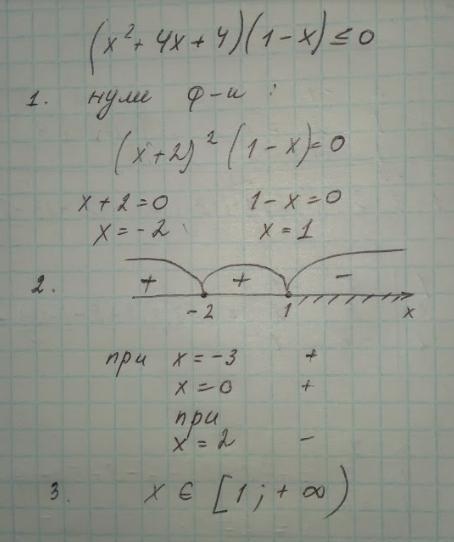 (x² + 4x + 4)(1 - x) ≤ 0
1. нули ф-и :
(x+2)² (1 - x) = 0
x + 2 = 0 1 - x = 0
x = -2 x = 1
2. + + -
-2 1 x
при x = -3 +
x = 0 +
при
x = 2 -
3. x ∈ [1; +∞)